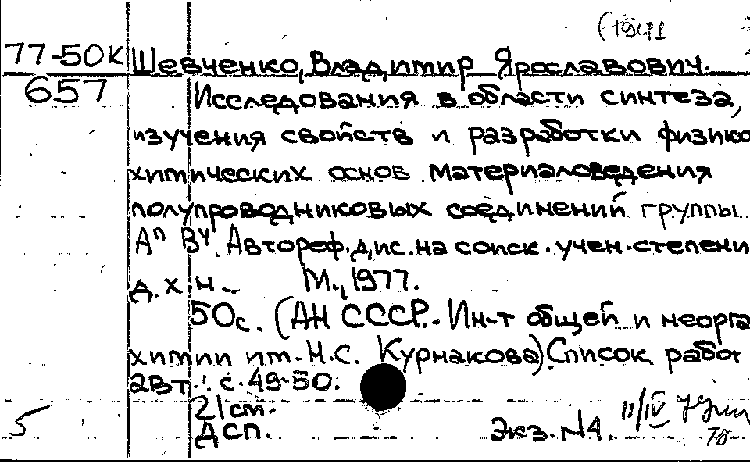 77-50к Шевченко, Владимир Ярославович.
657 Исследования в области синтеза,
изучения свойств и разработки физико
химических основ материаловедения
полупроводниковых соединений группы
AᴵᴵBⱽ. Автореф. дис. на соиск. учен. степени
д.х.н. М., 1977.
50с. (АН СССР. Ин-т общей и неорга
химии им. Н.С. Курнакова). Список работ
авт.: с. 49-50.
21 см.
5 ДСП. Экз. №4. 11/IV 78